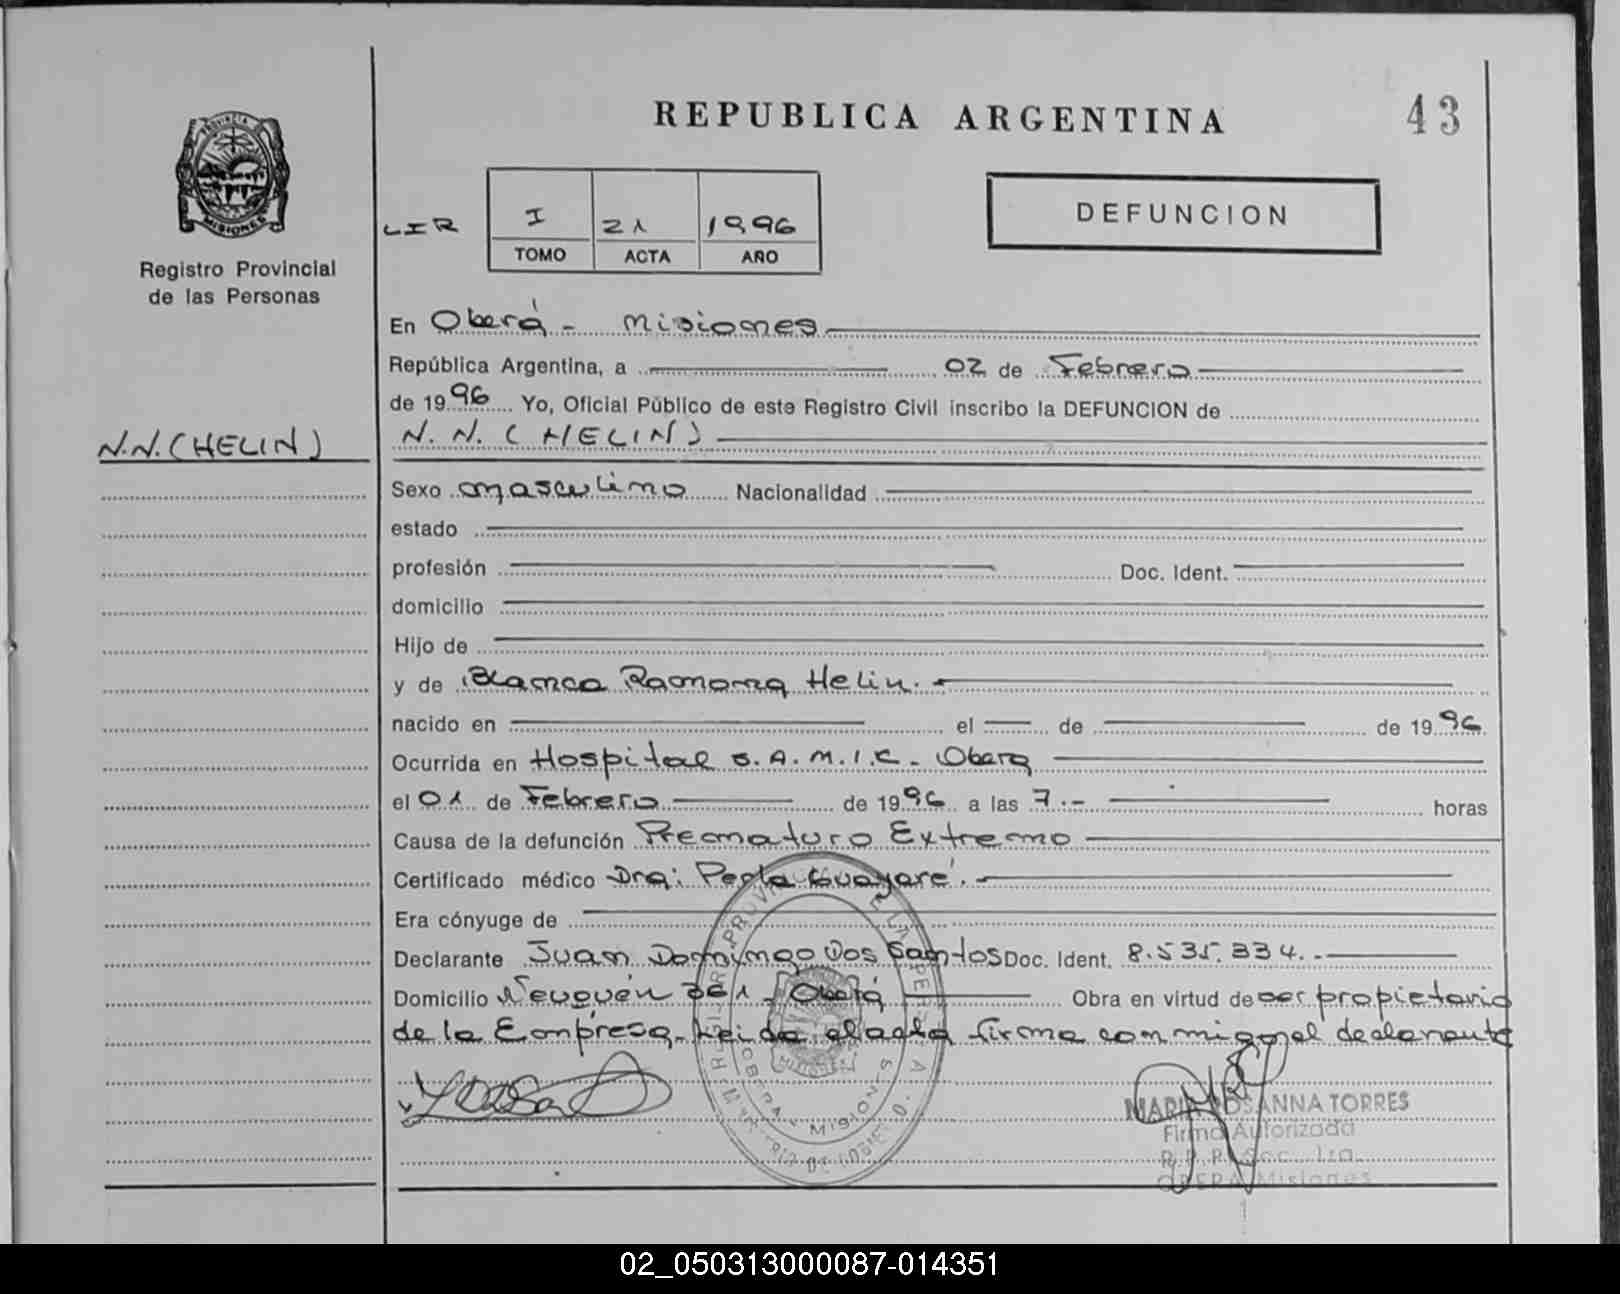 REPUBLICA ARGENTINA
43
PROVINCIA DE
MISIONES
Registro Provincial
de las Personas
LIR
I 21 1996
TOMO ACTA AÑO
DEFUNCION
En Oberá - Misiones
República Argentina, a 02 de Febrero
de 1996 Yo, Oficial Público de este Registro Civil inscribo la DEFUNCION de
N.N. (HELIN)
N.N. (HELIN)
Sexo masculino Nacionalidad
estado
profesión Doc. Ident.
domicilio
Hijo de
y de Blanca Ramona Helin.
nacido en el de de 1996
Ocurrida en Hospital S.A.M.I.C. - Obera
el 01 de Febrero de 1996 a las 7.- horas
Causa de la defunción Prematuro Extremo
Certificado médico Dra: Perla Guayaré.
Era cónyuge de
Declarante Juan Domingo Dos Santos Doc. Ident. 8.535.334.-
Domicilio Neuquén 361 - Oberá Obra en virtud de ser propietario
de la Empresa. Leida el acta firma conmigo el declarante
OBERA MISIONES
MARIA ROSANNA TORRES
Firma Autorizada
R.P.P. Secc. 1ra.
OBERA Misiones
02_050313000087-014351